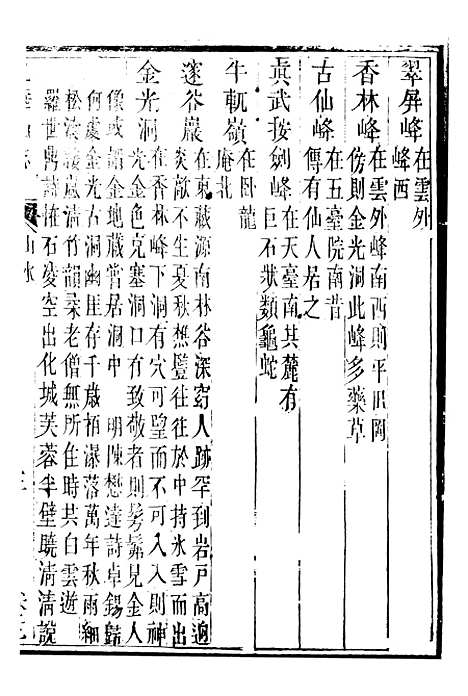 翠屏峰 在雲外
峰西
香林峰 在雲外峰南西則平田岡
傍則金光洞此峰多藥草
古仙峰 在五臺院南昔
傳有仙人居之
真武按劍峰 在天臺南其麓有
巨石狀類龜蛇
牛軛嶺 在臥龍
庵北
邃谷巖 在東藏源南林谷深窈人跡罕到岩戸高迥
炎歊不生夏秋樵豎往於中持氷雪而出
金光洞 在香林峰下洞有穴可望而不可入入則神
光金色克塞洞口有致敬者則髣髴見金人
儼或謂金地藏嘗居洞中 明陳懋達詩卓錫歸
何處金光古洞幽崖存千歲栢瀑落萬年秋雨細
松濤緩嵐清竹韻柔老僧無所住時共白雲遊
羅世鼎詩 石凌空出化城芙蓉半壁曉清清說
山水